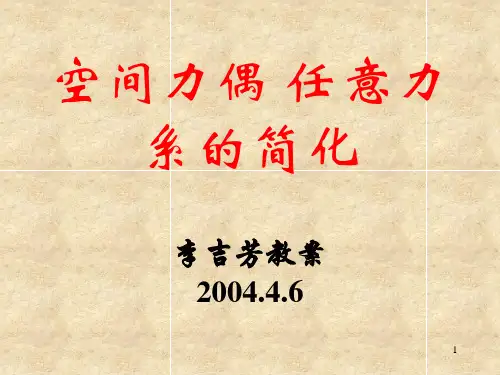 空间力偶 任意力
系的简化
李吉芳教案
2004.4.6
1